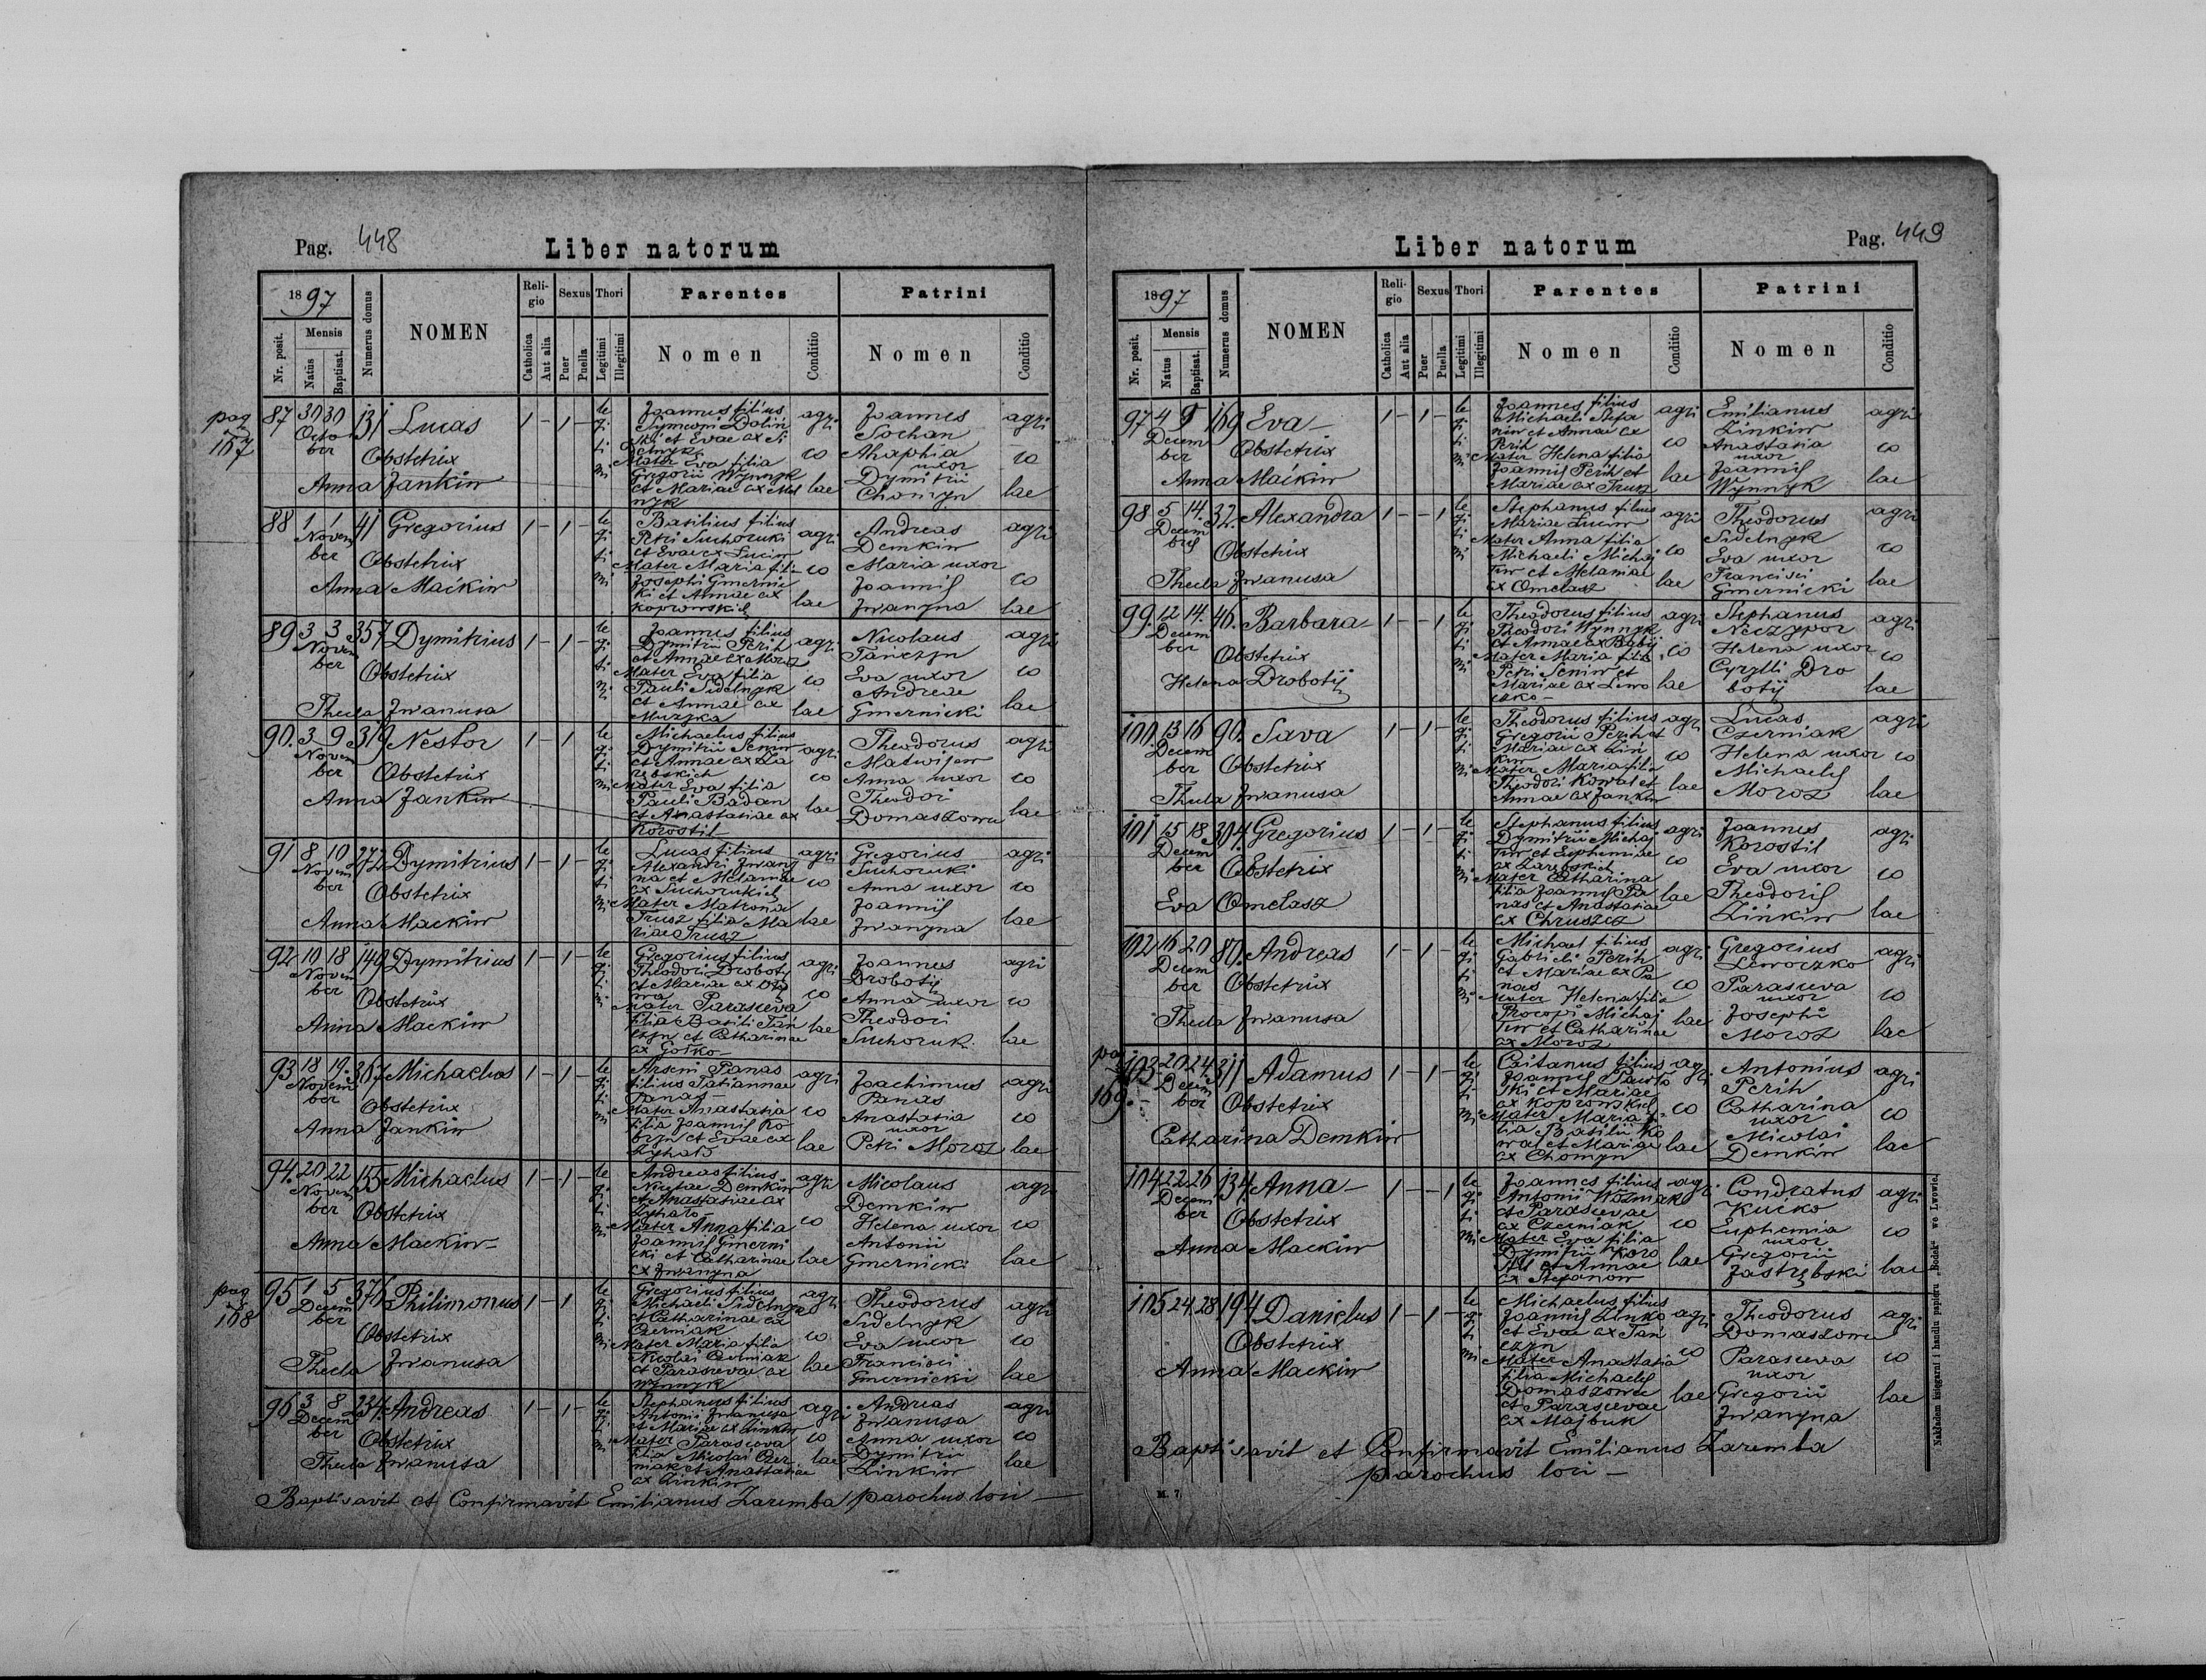 Pag. 448
Liber natorum
1897
Nr. posit.
Mensis
Natus
Baptisat.
Numerus domus
NOMEN
Religio
Catholica
Aut alia
Sexus
Puer
Puella
Thori
Legitimi
Illegitimi
Parentes
Nomen
Conditio
Patrini
Nomen
Conditio
pag 107
87 30 30 131 Lucas 1 - 1 -
Octo
ber
Obstetrix
Anna Jankiw
le
gi
ti
mi
Joannes filius
Symeoni Dolin
ski et Evae ex Si
delnyk
Mater Eva filia
Gregorii Wynnyk
et Mariae ex Mel
nyk
agri
co
lae
Joannes
Sochan
Ahaphia
uxor
Dymitrii
Chomyn
agri
co
lae
88 1 1 41 Gregorius 1 - 1 -
Novem
ber
Obstetrix
Anna Maćkiw
le
gi
ti
mi
Basilius filius
Petri Suchoruki
et Evae ex Luciw
Mater Maria fili
Josephi Gmernic
ki et Annae ex
Koprowskich
agri
co
lae
Andreas
Demkiw
Maria uxor
Joannis
Jwanyna
agri
co
lae
89 3 3 357 Dymitrius 1 - 1 -
Novem
ber
Obstetrix
Thecla Jwanusa
le
gi
ti
mi
Joannes filius
Dymitrii Perih
et Annae ex Moroz
Mater Eva filia
Pauli Sidelnyk
et Annae ex
Muzyka
agri
co
lae
Nicolaus
Tańczyn
Eva uxor
Andreae
Gmernicki
agri
co
lae
90. 3 9 319 Nestor 1 - 1
Novem
ber
Obstetrix
Anna Jankiw
le
gi
ti
mi
Michaelus filius
Dymitrii Seniw
et Annae ex Za
rebskich
Mater Eva filia
Pauli Badan
et Anastasiae ex
Korostil
agri
co
lae
Theodorus
Matwijow
Anna uxor
Theodori
Domaszowec
agri
co
lae
91 8 10 272 Dymitrius 1 - 1 -
Novem
ber
Obstetrix
Anna Mackiw
le
gi
ti
mi
Lucas filius
Alexandri Jwany
na et Melaniae
ex Suchorukich
Mater Matrona
Trusz filia Ma
riae Trusz
agri
co
lae
Gregorius
Suchoruki
Anna uxor
Joannis
Jwanyna
agri
co
lae
92 10 18 149 Dymitrius 1 - 1 -
Novem
ber
Obstetrix
Anna Mackiw
le
gi
ti
mi
Gregorius filius
Theodori Drobotij
et Mariae ex
Mater Parasceva
filia Basili Tań
czyn et Catharinae
ex Gołko
agri
co
lae
Joannes
Drobotij
Anna uxor
Theodori
Suchoruki
agri
co
lae
93 18 19. 367 Michaelus 1 - 1 -
Novem
ber
Obstetrix
Anna Jankiw
le
gi
ti
mi
Arseni Panas
filius Tatiannae
Panas
Mater Anastasia
filia Joannis Ko
bryn et Evae ex
Ryhało
agri
co
lae
Joachimus
Panas
Anastasia
uxor
Petri Moroz
agri
co
lae
94. 20 22 155 Michaelus 1 - 1 -
Novem
ber
Obstetrix
Anna Mackiw
le
gi
ti
mi
Andreas filius
Nicetae Demkiw
et Anastasiae ex
Ryhało
Mater Anna filia
Joannis Gmerni
cki et Catharinae
ex Jwanyna
agri
co
lae
Nicolaus
Demkiw
Helena uxor
Antonii
Gmernicki
agri
co
lae
pag 108
95 1 5 376 Philimonus 1 - 1
Decem
ber
Obstetrix
Thecla Jwanusa
le
gi
ti
mi
Gregorius filius
Michaeli Sidelnyk
et Catharinae ex
Czerniak
Mater Maria filia
Nicolai Czerniak
et Parascevae ex
Wynnyk
agri
co
lae
Theodorus
Sidelnyk
Eva uxor
Francisci
Gmernicki
agri
co
lae
96 3 8 234 Andreas 1 - 1 -
Decem
ber
Obstetrix
Thecla Jwanusa
le
gi
ti
mi
Stephanus filius
Antonii Jwanusa
et Mariae ex Zinkiw
Mater Parasceva
filia Nicolai Czer
niak et Anastasiae
ex Zinkiw
agri
co
lae
Andreas
Jwanusa
Anna uxor
Dymitrii
Zinkiw
agri
co
lae
Baptisavit et Confirmavit Emilianus Zaremba parochus loci
Liber natorum
Pag. 449
1897
Nr. posit.
Mensis
Natus
Baptisat.
Numerus domus
NOMEN
Religio
Catholica
Aut alia
Sexus
Puer
Puella
Thori
Legitimi
Illegitimi
Parentes
Nomen
Conditio
Patrini
Nomen
Conditio
97 4 9 169 Eva 1 - 1 -
Decem
ber
Obstetrix
Anna Maćkiw
le
gi
ti
mi
Joannes filius
Michaeli Stefa
niw et Annae ex
Perih
Mater Helena filia
Joannis Perih et
Mariae ex Trusz
agri
co
lae
Emilianus
Zinkiw
Anastasia
uxor
Joannis
Wynnyk
agri
co
lae
98 5 14. 37. Alexandra 1 - - 1
Decem
bris
Obstetrix
Thecla Jwanusa
le
gi
ti
mi
Stephanus filius
Mariae Luciw
Mater Anna filia
Michaeli Michaj
liw et Melaniae
ex Omelasz
agri
co
lae
Theodorus
Sidelnyk
Eva uxor
Francisci
Gmernicki
agri
co
lae
99. 12 14. 46. Barbara 1 - - 1
Decem
ber
Obstetrix
Helena Drobotij
le
gi
ti
mi
Theodorus filius
Theodori Wynnyk
et Annae ex Babij
Mater Maria filia
Petri Seniw et
Mariae ex Lewo
czko
agri
co
lae
Stephanus
Neczypor
Helena uxor
Cyrylli Dro
botij
agri
co
lae
100 13 16 90. Sava 1 - 1 -
Decem
ber
Obstetrix
Thecla Jwanusa
le
gi
ti
mi
Theodorus filius
Gregorii Perih et
Mariae ex Zin
kiw
Mater Maria filia
Theodori Kowal et
Annae ex Jankiw
agri
co
lae
Lucas
Czerniak
Helena uxor
Michaelis
Moroz
agri
co
lae
101 15 18 304. Gregorius 1 - 1 -
Decem
ber
Obstetrix
Eva Omelasz
le
gi
ti
mi
Stephanus filius
Dymitrii Michaj
liw et Euphemiae
ex Zarebskich
Mater Catharina
filia Joannis Pa
nas et Anastasiae
ex Chruszcz
agri
co
lae
Joannes
Korostil
Eva uxor
Theodoris
Zinkiw
agri
co
lae
102 16 20 80. Andreas 1 - 1 -
Decem
ber
Obstetrix
Thecla Jwanusa
le
gi
ti
mi
Michael filius
Gabrieli Perih
et Mariae ex Pa
nas
Mater Helena filia
Procopi Michaj
liw et Catharinae
ex Moroz
agri
co
lae
Gregorius
Lewoczko
Parasceva
uxor
Josephi
Moroz
agri
co
lae
pag 109.
103 20 24 311 Adamus 1 - 1 -
Decem
ber
Obstetrix
Catharina Demkiw
le
gi
ti
mi
Caitanus filius
Joannis Pawło
ski et Mariae
ex Koprowskich
Mater Maria fi
lia Basilii Ko
wal et Mariae
ex Chomyn
agri
co
lae
Antonius
Perih
Catharina
uxor
Nicolai
Demkiw
agri
co
lae
104 22 26 134 Anna 1 - - 1
Decem
ber
Obstetrix
Anna Mackiw
le
gi
ti
mi
Joannes filius
Antonii Woźniak
et Parascevae
ex Czerniak
Mater Eva filia
Dymitrii Koro
stil et Annae
ex Stefanow
agri
co
lae
Condratus
Kucko
Euphemia
uxor
Gregorii
Jastrębski
agri
co
lae
105 24 28 194 Danielus 1 - 1 -
Obstetrix
Anna Mackiw
le
gi
ti
mi
Michaelus filius
Joannis Zinko
et Evae ex Tań
czyn
Mater Anastasia
filia Michaelis
Domaszowec
et Parascevae
ex Majbuk
agri
co
lae
Theodorus
Domaszowec
Parasceva
uxor
Gregorii
Jwanyna
agri
co
lae
Baptisavit et Confirmavit Emilianus Zaremba
parochus loci
M. 7.
Nakładem księgarni i handlu papieru „Bodek" we Lwowie.